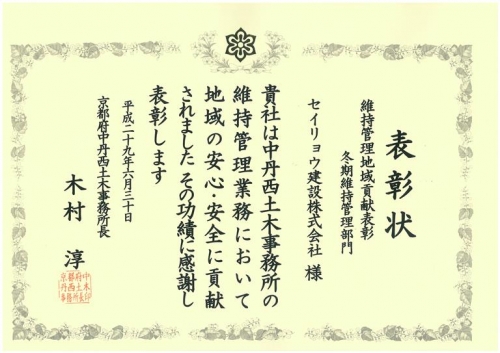 表彰状
維持管理地域貢献表彰
冬期維持管理部門
セイリョウ建設株式会社 様
貴社は中丹西土木事務所の
維持管理業務において
地域の安心・安全に貢献
されました その功績に感謝し
表彰します
平成二十九年六月三十日
京都府中丹西土木事務所長
木村 淳